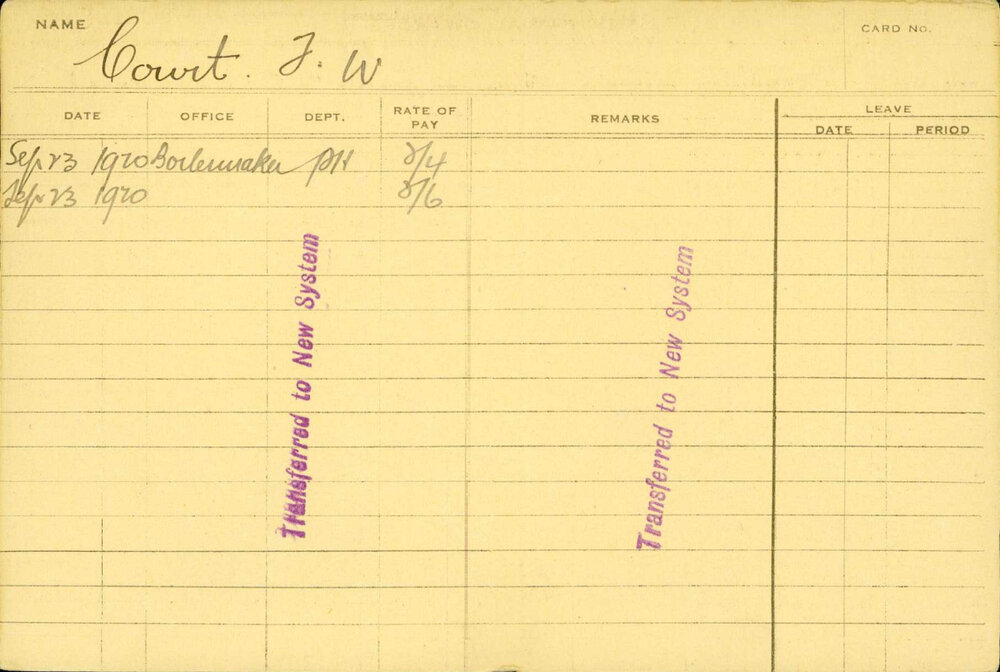 NAME Court. F. W CARD NO.
DATE OFFICE DEPT. RATE OF PAY REMARKS LEAVE
DATE PERIOD
Sep 23 1920 Boilermaker PH 2/4
Sep 23 1920 2/6
Transferred to New System
Transferred to New System